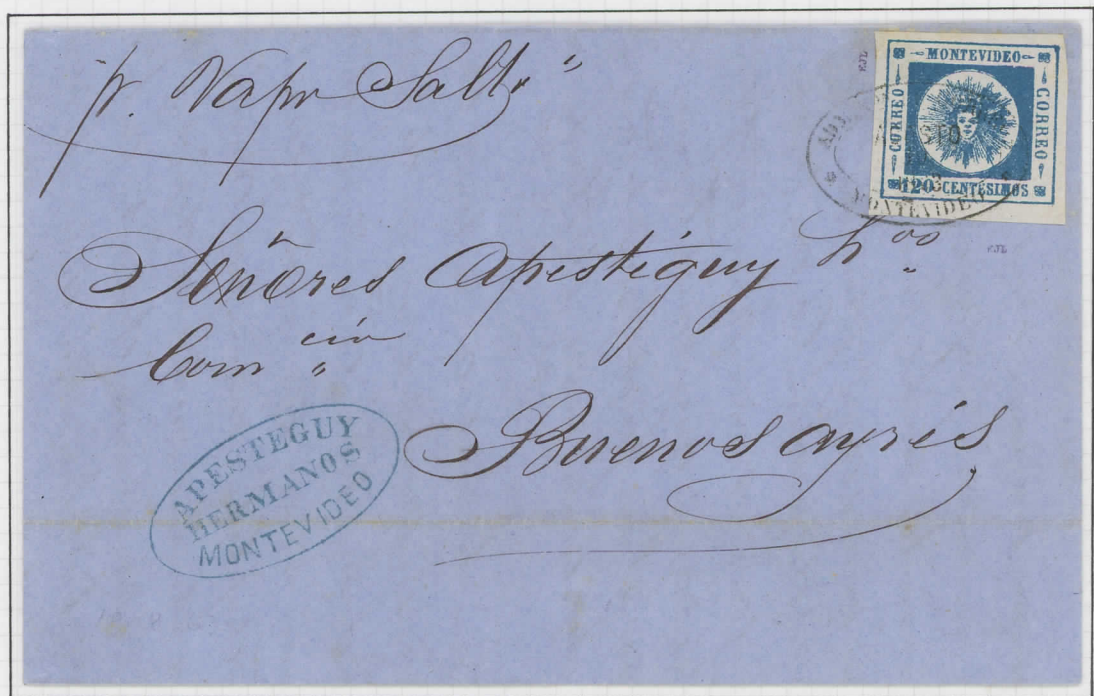 pr. Vapor Salto"
MONTEVIDEO
CORREO
CORREO
120 CENTESIMOS
MONTEVIDEO
EJL
EJL
Señores Apestiguy hnos
Comcia
Buenos ayres
APESTEGUY
HERMANOS
MONTEVIDEO